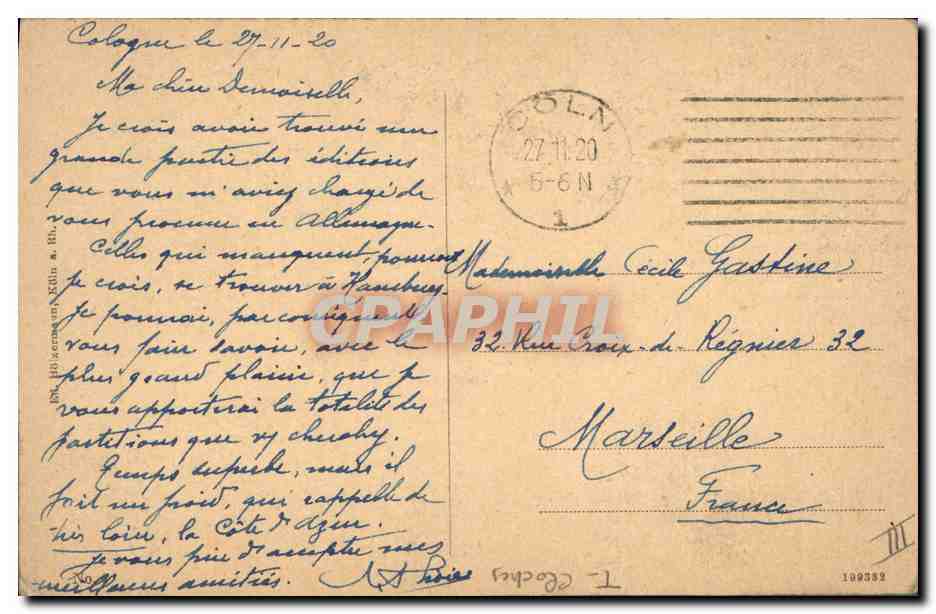 Cologne le 27-11-20
Ma chère Demoiselle,
Je crois avoir trouvé une
grande partie des éditions
que vous m'aviez chargé de
vous procurer en Allemagne.
Celles qui manquent, pourront
je crois, se trouver à Hambourg.
Je pourrai, par conséquent
vous faire savoir, avec le
plus grand plaisir, que je
vous apporterai la totalité des
partitions que vs cherchez.
Temps superbe, mais il
fait un froid, qui rappelle de
très loin, la Côte d'azur.
Je vous prie d'accepter mes
meilleures amitiés.
CÖLN
27.11.20
5-6 N
1
Mademoiselle Cécile Gastine
32 Rue Croix-de-Régnier 32
Marseille
France
III
T- Cloches
199382
No.
Edt. Hölzermann, Köln a. Rh.
CPAPHIL